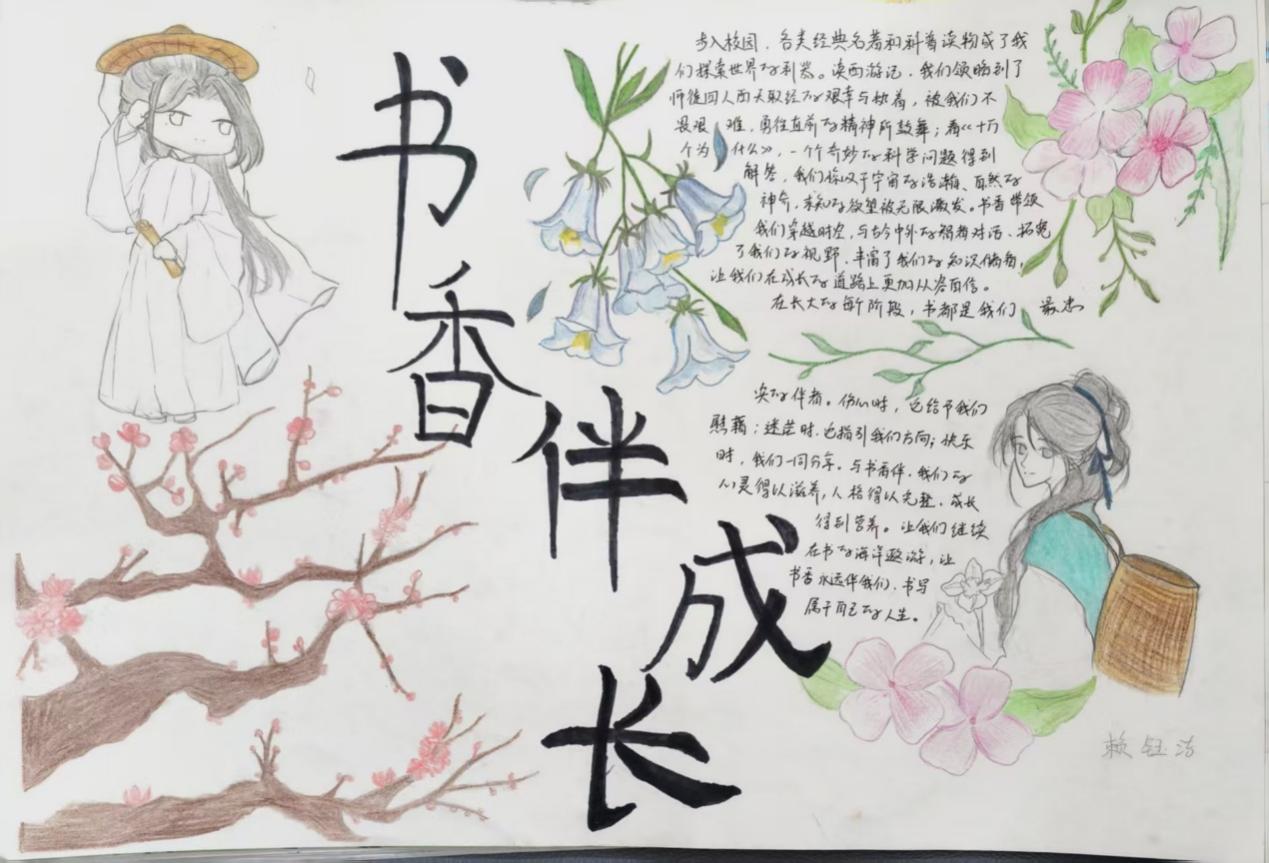 书香伴成长
步入校园，各类经典名著和科普读物成了我
们探索世界的利器。读西游记，我们领略到了
师徒四人西天取经的艰辛与执着，被我们不
畏艰难，勇往直前的精神所鼓舞；看《十万
个为什么》，一个个奇妙的科学问题得到
解答，我们惊叹于宇宙的浩瀚、自然的
神奇，求知的欲望被无限激发。书香带领
我们穿越时空，与古今中外的智者对话，拓宽
了我们的视野，丰富了我们的知识储备，
让我们在成长的道路上更加从容自信。
在长大的每个阶段，书都是我们 最忠
实的伴者。伤心时，它给予我们
慰藉；迷茫时，它指引我们方向；快乐
时，我们一同分享。与书香伴，我们的
心灵得以滋养，人格得以完整，成长
得到营养。让我们继续
在书的海洋遨游，让
书香永远伴我们，书写
属于自己的人生。
赖钰洁